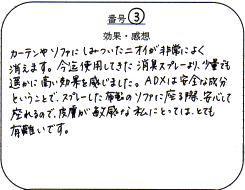 番号 ③
効果・感想
カーテンやソファにしみついたニオイが非常によく
消えます。今迄使用してきた消臭スプレーより、少量でも
遥かに高い効果を感じました。ADXは安全な成分
ということで、スプレーした布製のソファに座る際、安心して
座れるので、皮膚が敏感な私にとっては、とても
有難いです。